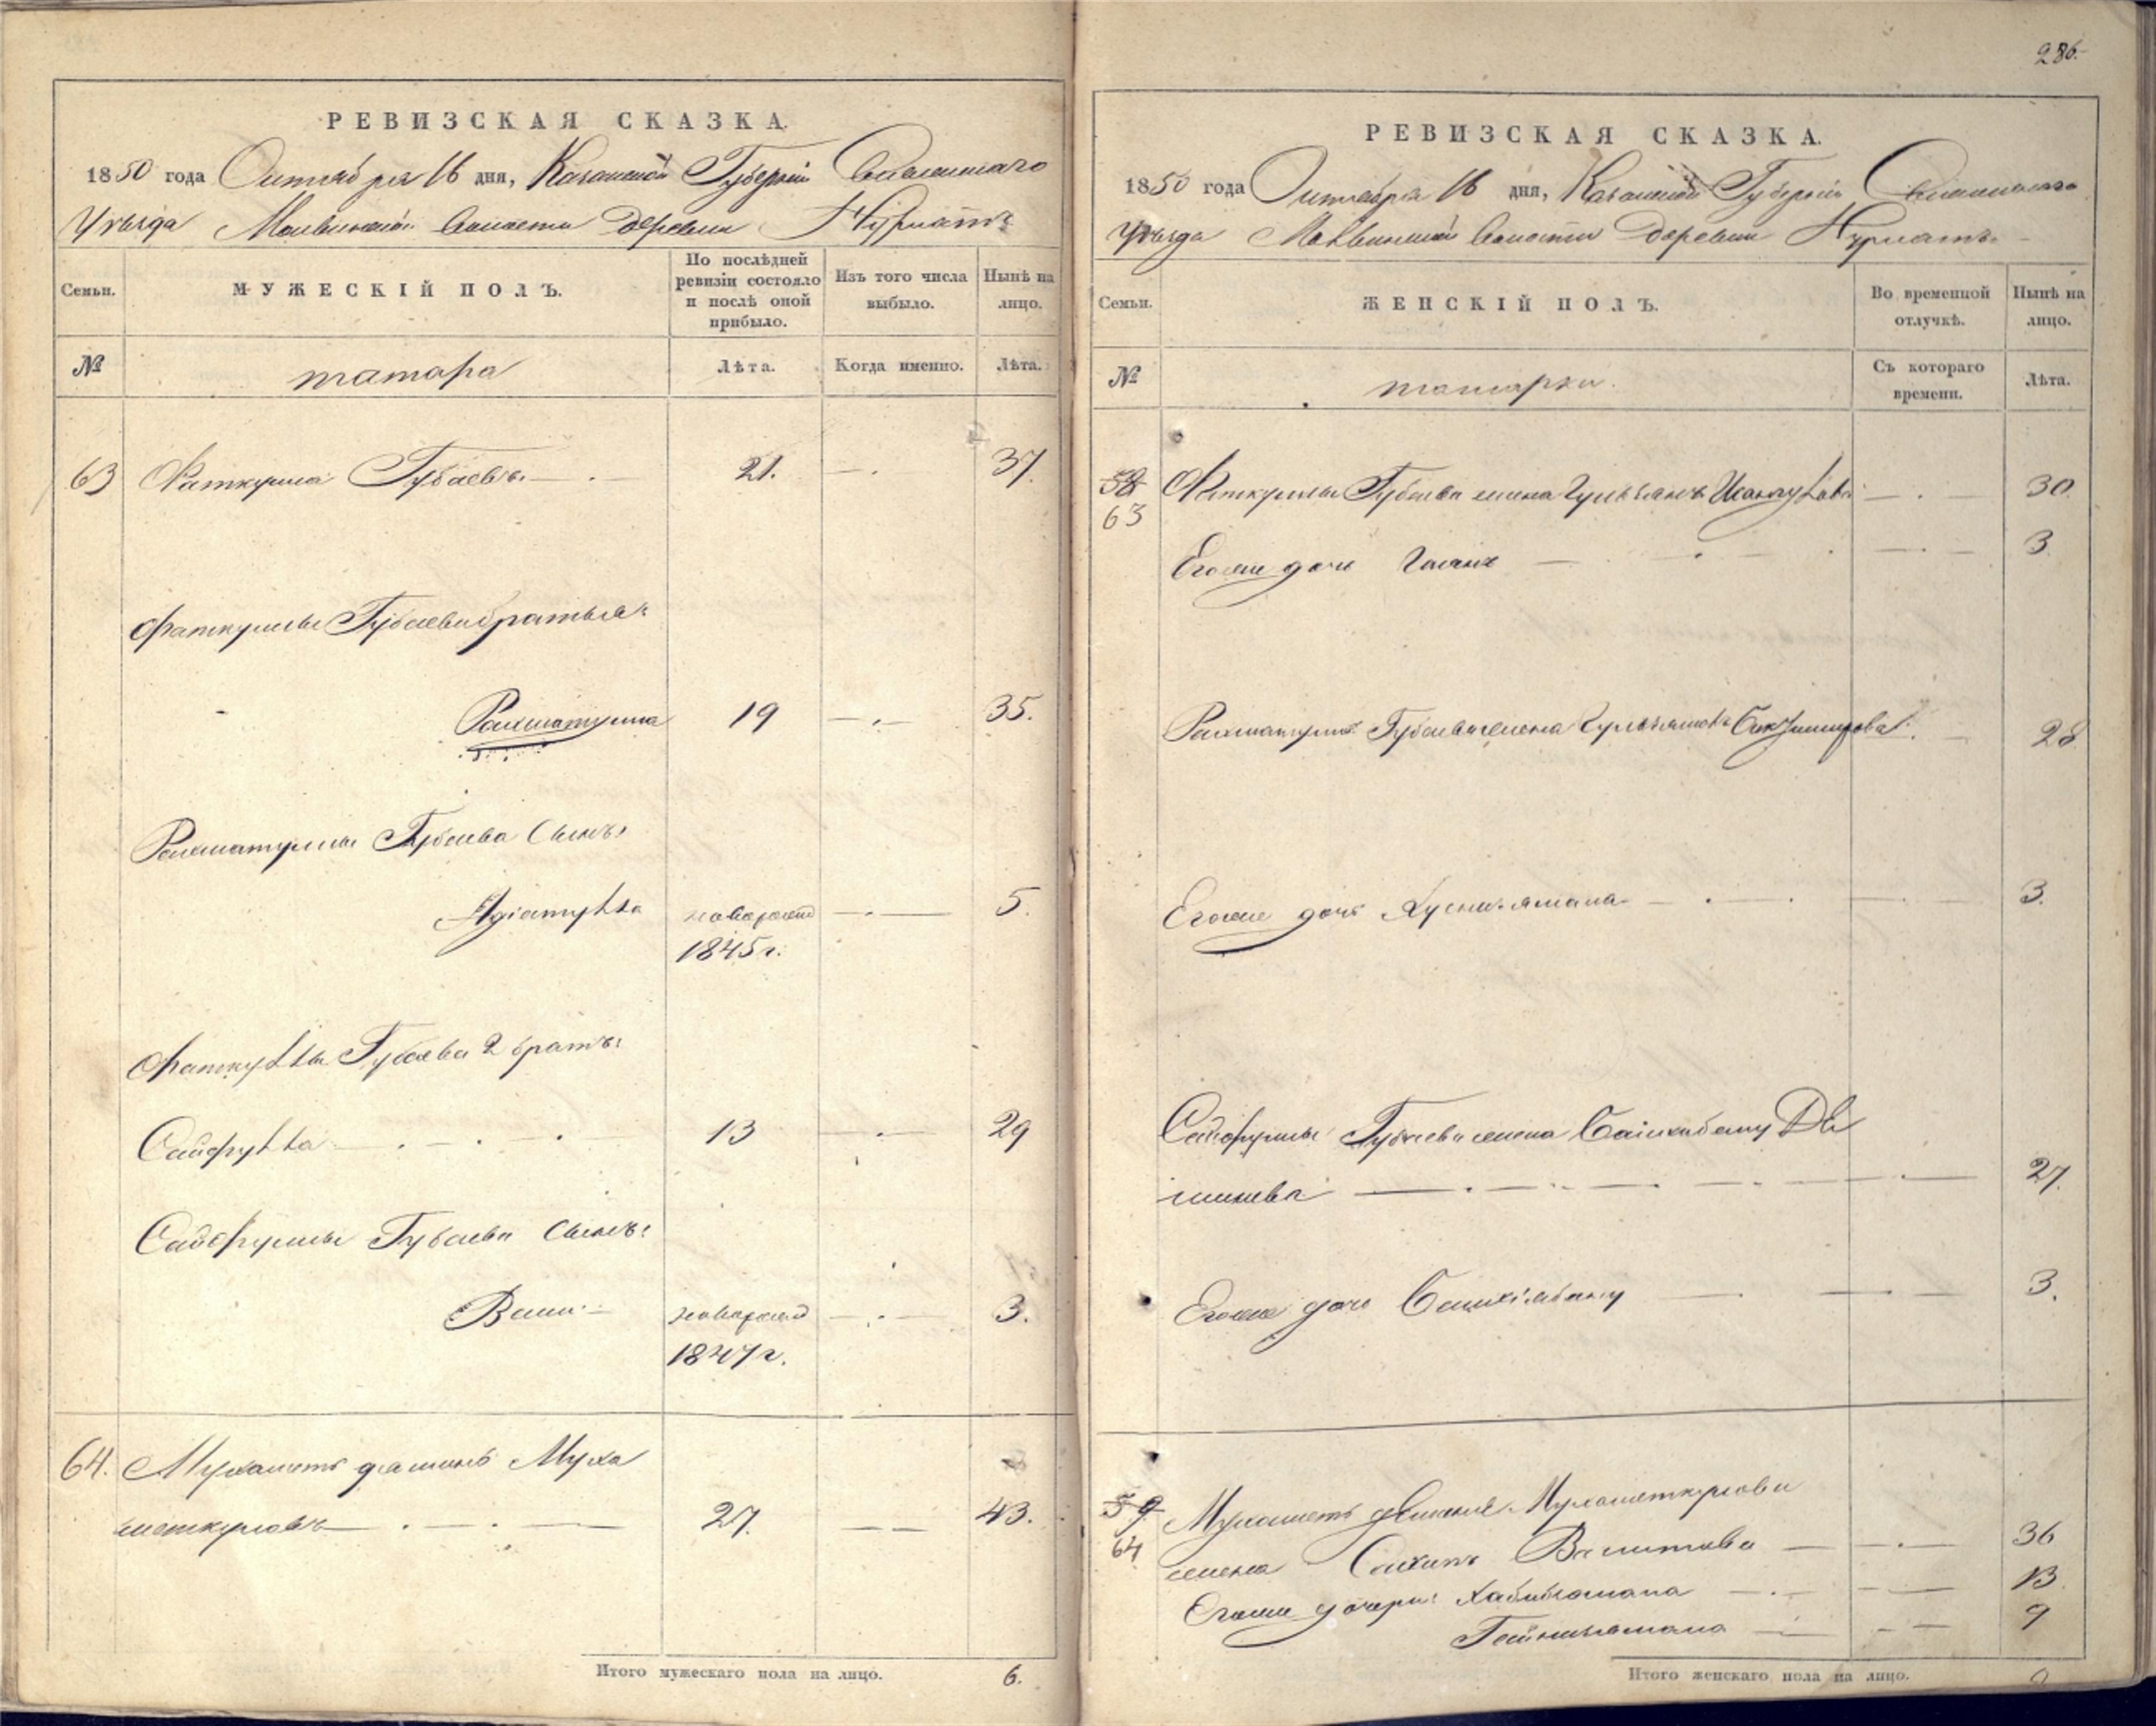 286.
РЕВИЗСКАЯ СКАЗКА.
1850 года Октября 16 дня, Казанской Губернии Свияжскаго
Уѣзда Молвинской Волости Деревни Нурлатъ
Семьи. МУЖЕСКІЙ ПОЛЪ. По послѣдней ревизіи состояло и послѣ оной прибыло. Изъ того числа выбыло. Нынѣ на лицо.
№ татара Лѣта. Когда именно. Лѣта.
63 Фаткулла Губаевъ 21. 37.
Фаткуллы Губаева братья:
Рахматулла 19 35.
Рахматуллы Губаева сынъ:
новорожд 5.
1845 г.
Фаткуллы Губаева 2 братъ:
Сайфулла 13 29
Сайфуллы Губаева сынъ:
Вали новорожд 3.
1847 г.
64. Мухаметъ Муха
меткуловъ 27. 43.
Итого мужескаго пола на лицо. 6.
РЕВИЗСКАЯ СКАЗКА.
1850 года Октября 16 дня, Казанской Губерніи Свияжскаго
Уѣзда Молвинской Волости Деревни Нурлатъ
Семьи. ЖЕНСКІЙ ПОЛЪ. Во временной отлучкѣ. Нынѣ на лицо.
№ татарки. Съ котораго времени. Лѣта.
58 Фаткуллы Губаева жена 30
63
Егоже дочь 3.
Рахматуллы Губаева жена 28
Егоже дочь Хуснизямала 3.
Сайфуллы Губаева жена
27.
Егоже дочь 3.
59 Мухаметъ Мухаметкулова
64 жена Валитова 36
Егоже дочери: Хабибзямала 13.
Гайнизямала 9
Итого женскаго пола на лицо. 9